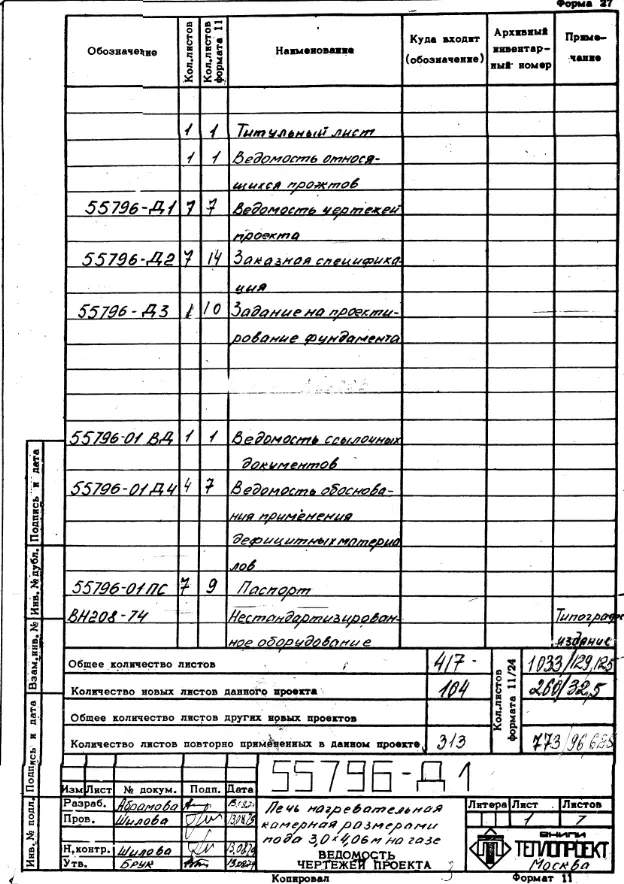 Форма 27
Обозначение Кол.листов Кол.листов формата 11 Наименование Куда входит (обозначение) Архивный инвентарный номер Примечание
1 1 Титульный лист
1 1 Ведомость относя-
щихся проектов
55796-Д1 7 7 Ведомость чертежей
проекта
55796-Д2 7 14 Заказная специфика-
ция
55796-Д3 1 10 Задание на проекти-
рование фундамента
55796-01 ВД 1 1 Ведомость ссылочных
документов
55796-01Д4 4 7 Ведомость обоснова-
ния применения
дефицитных материа
лов
55796-01ПС 7 9 Паспорт
ВН208-74 Нестандартизирован-
ное оборудование издание
Общее количество листов 417 1033/129,125
Количество новых листов данного проекта 104 260/32,5
Общее количество листов других новых проектов
Количество листов повторно применённых в данном проекте 313
Кол.листов формата 11/24
Подпись и дата
Инв.№ дубл.
Взам.инв.№
Подпись и дата
Инв.№ подл.
55796-Д1
Изм Лист № докум. Подп. Дата
Разраб. Абрамова
Пров. Шилова
Н.контр. Шилова
Утв. Брук
Печь нагревательная
камерная размерами
пода 3,0х4,06м на газе
ВЕДОМОСТЬ
ЧЕРТЕЖЕЙ ПРОЕКТА
Литера Лист Листов
1 7
ВНИПИ
ТЕПЛОПРОЕКТ
Москва
Копировал Формат 11